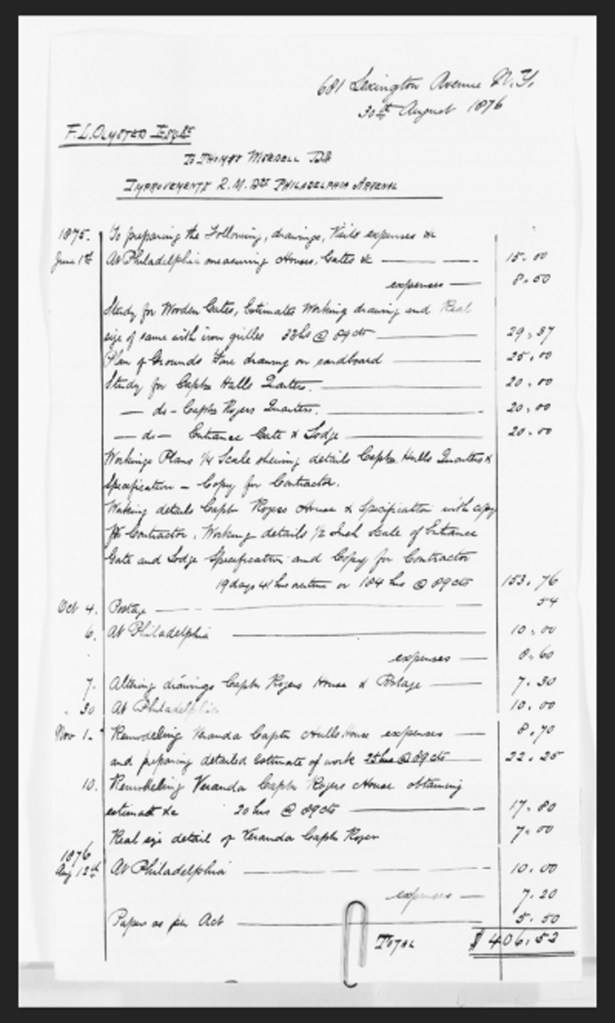 681 Lexington Avenue N.Y.
30th August 1876
F. L. Olmsted Esqre
To Thomas Wisedell Dr
Improvements Q. M. Dpt Philadelphia Arsenal
1875. To preparing the Following, drawings, Visits expenses &c
June 1st At Philadelphia measuring Houses, Gates &c 15.00
expenses 8.50
Study for Wooden Gates, Estimates Working drawing and Real
size of same with iron grilles 33hs @ 89cts 29.37
Plan of Grounds Fine drawing on cardboard 25.00
Study for Captn Halls Quarters. 20.00
- do - Captn Rogers Quarters. 20.00
- do - Entrance Gate & Lodge 20.00
Workings Plans 1/4 Scale shewing details Captn. Halls Quarters &
Specification - Copy for Contractor.
Working details Captn Rogers House & Specification with copy
for Contractor. Working details 1/2 Inch Scale of Entrance
Gate and Lodge Specification and Copy for Contractor
19 days 41 hrs overtime or 184 hrs @ 89cts 153.76
Oct 4. Postage 54
6. At Philadelphia 10.00
expenses 8.60
7. Altering drawings Captn Rogers House & Postage 7.30
30 At Philadelphia 10.00
Nov 1. Remodeling Veranda Captn Halls House expenses 8.70
and preparing detailed Estimate of work 25 hrs @ 89cts 22.25
10. Remodeling Veranda Captn Rogers House obtaining
estimate &c 20 hrs @ 89cts 17.80
Real size detail of Veranda Captn Rogers 7.00
1876
Aug 12th At Philadelphia 10.00
expenses 7.20
Paper as per Act 5.50
Total $406.52